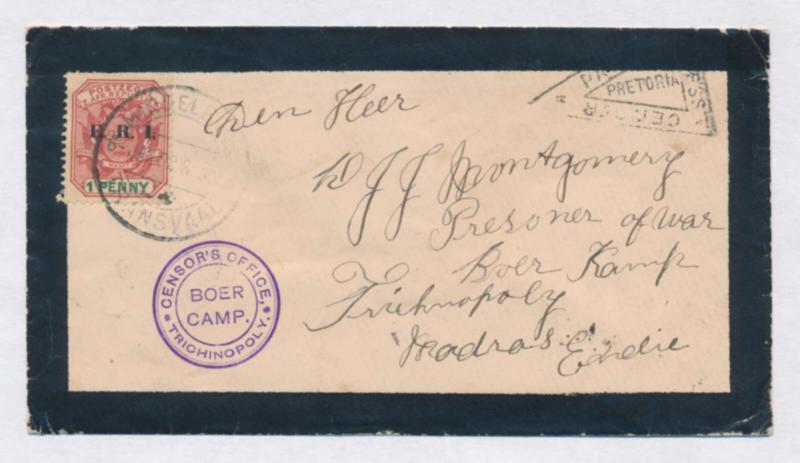 POSTZEGEL
V.R.I.
1 PENNY
TRANSVAAL
PRETORIA
CENSOR
Den Heer
J J Montgomery
Presoner of War
Boer Kamp
Trichnopoly
Madras Endie
CENSOR'S OFFICE,
BOER
CAMP.
TRICHINOPOLY.